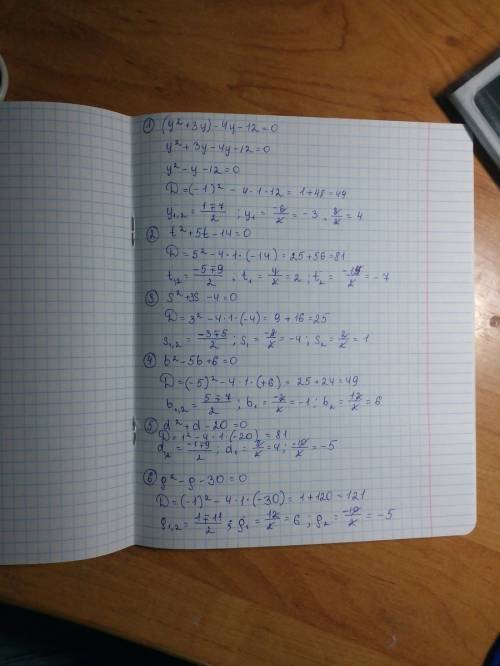 ① (y² + 3y) - 4y - 12 = 0
y² + 3y - 4y - 12 = 0
y² - y - 12 = 0
D = (-1)² - 4 · 1 · 12 = 1 + 48 = 49
y₁,₂ = (1 ∓ 7)/2 ; y₁ = -6/2 = -3 , 8/2 = 4
② t² + 5t - 14 = 0
D = 5² - 4 · 1 · (-14) = 25 + 56 = 81
t₁,₂ = (-5 ∓ 9)/2 ; t₁ = 4/2 = 2 ; t₂ = -14/2 = -7
③ s² + 3s - 4 = 0
D = 3² - 4 · 1 · (-4) = 9 + 16 = 25
s₁,₂ = (-3 ∓ 5)/2 ; s₁ = -8/2 = -4 ; s₂ = 2/2 = 1
④ b² - 5b + 6 = 0
D = (-5)² - 4 · 1 · (+6) = 25 + 24 = 49
b₁,₂ = (5 ∓ 7)/2 ; b₁ = -2/2 = -1 ; b₂ = 12/2 = 6
⑤ d² + d - 20 = 0
D = 1² - 4 · 1 · (-20) = 81
d₁,₂ = (-1 ∓ 9)/2 ; d₁ = 8/2 = 4 ; -10/2 = -5
⑥ g² - g - 30 = 0
D = (-1)² - 4 · 1 · (-30) = 1 + 120 = 121
g₁,₂ = (1 ∓ 11)/2 ; g₁ = 12/2 = 6 ; g₂ = -10/2 = -5